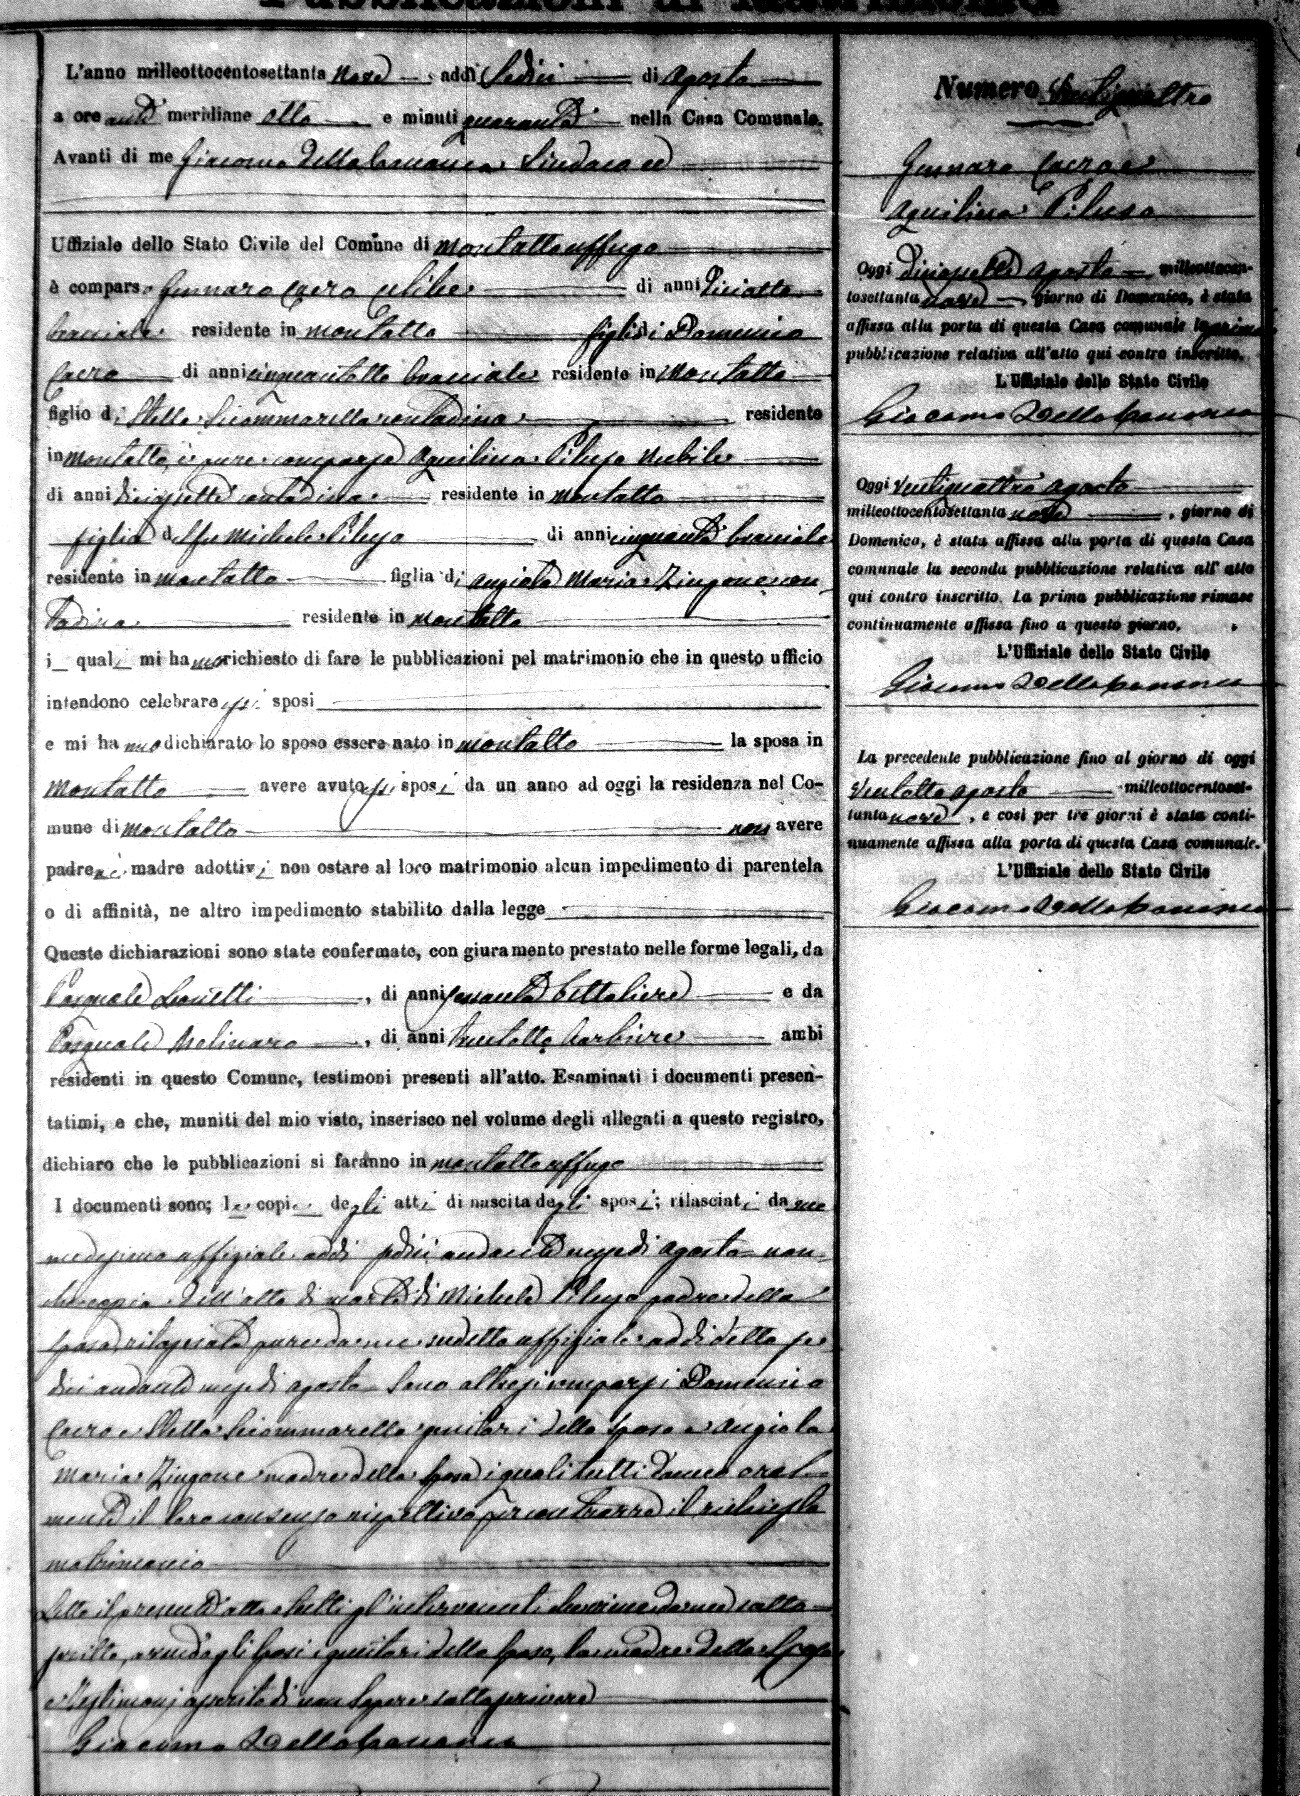 Pubblicazioni di Matrimonio
L'anno milleottocentosettanta nove addì sedici di Agosto
a ore anti meridiane otto e minuti quaranta nella Casa Comunale.
Avanti di me Giacomo Dellabonanza Sindaco ed
Uffiziale dello Stato Civile del Comune di Montaltouffugo
è compars o Gennaro Cacro celibe di anni diciotto
bracciale residente in Montalto figlio di Domenico
Cacro di anni cinquantotto bracciale residente in Montalto
figlio di Stella Sciommarella contadina residente
in Montalto, è pure comparsa Aquilina Piluso Nubile
di anni diciassette contadina residente in Montalto
figlia del fu Michele Piluso di anni cinquanta bracciale
residente in Montalto figlia di Angiola Maria Zingone con
tadina residente in Montalto
i quali mi hanno richiesto di fare le pubblicazioni pel matrimonio che in questo ufficio
intendono celebrare essi sposi
e mi hanno dichiarato lo sposo essere nato in Montalto la sposa in
Montalto avere avuto essi sposi da un anno ad oggi la residenza nel Co-
mune di Montalto non avere
padre nè madre adottivi non ostare al loro matrimonio alcun impedimento di parentela
o di affinità, ne altro impedimento stabilito dalla legge
Queste dichiarazioni sono state confermate, con giuramento prestato nelle forme legali, da
Pasquale Leonetti, di anni sessanta bettoliere e da
Pasquale Molinaro, di anni trentotto barbiere ambi
residenti in questo Comune, testimoni presenti all'atto. Esaminati i documenti presen-
tatimi, e che, muniti del mio visto, inserisco nel volume degli allegati a questo registro,
dichiaro che le pubblicazioni si faranno in Montalto uffugo
I documenti sono; le copie degli atti di nascita degli sposi; rilasciati da me
medesimo uffiziale addì sedici andante mese di Agosto non
che copia dell'atto di morte di Michele Piluso padre della
sposa rilasciata pure da me sudetto uffiziale addì detto se
dici andante mese di agosto Sono altresì comparsi Domenico
Cacro e Stella Sciommarella genitori dello sposo e Angiola
Maria Zingone madre della sposa i quali tutti danno oral
mente il loro consenso rispettivo per contrarre il richiesto
matrimonio
Letto il presente atto a tutti gl'intervenuti da me sotto
scritto, avendo gli sposi i genitori dello sposo, la madre della sposa
e testimoni asserito di non sapere sottoscrivere
Giacomo Dellabonanza
Numero Ventiquattro
Gennaro Cacro e
Aquilina Piluso
Oggi diciassette Agosto milleottocen-
tosettanta nove, giorno di Domenica, è stata
affissa alla porta di questa Casa comunale la prima
pubblicazione relativa all'atto qui contro inscritto.
L'Uffiziale dello Stato Civile
Giacomo Dellabonanza
Oggi ventiquattro agosto
milleottocentosettanta nove, giorno di
Domenica, è stata affissa alla porta di questa Casa
comunale la seconda pubblicazione relativa all'atto
qui contro inscritto. La prima pubblicazione rimase
continuamente affissa fino a questo giorno.
L'Uffiziale dello Stato Civile
Giacomo Dellabonanza
La precedente pubblicazione fino al giorno di oggi
ventotto agosto milleottocentoset-
tanta nove, e così per tre giorni è stata conti-
nuamente affissa alla porta di questa Casa comunale.
L'Uffiziale dello Stato Civile
Giacomo Dellabonanza